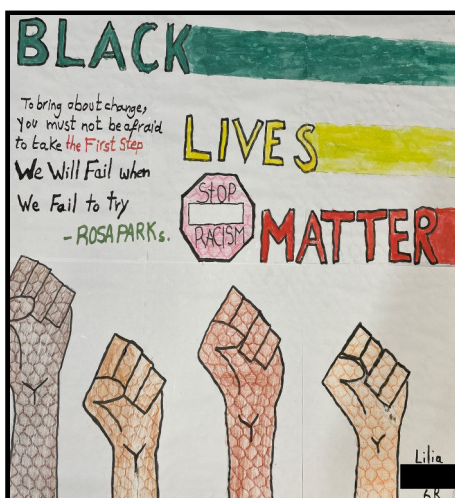 BLACK
To bring about change,
you must not be afraid
to take the First Step
We Will Fail when
We Fail to try
-ROSA PARKs.
LIVES
StOP
RACISM
MATTER
Lilia
6R